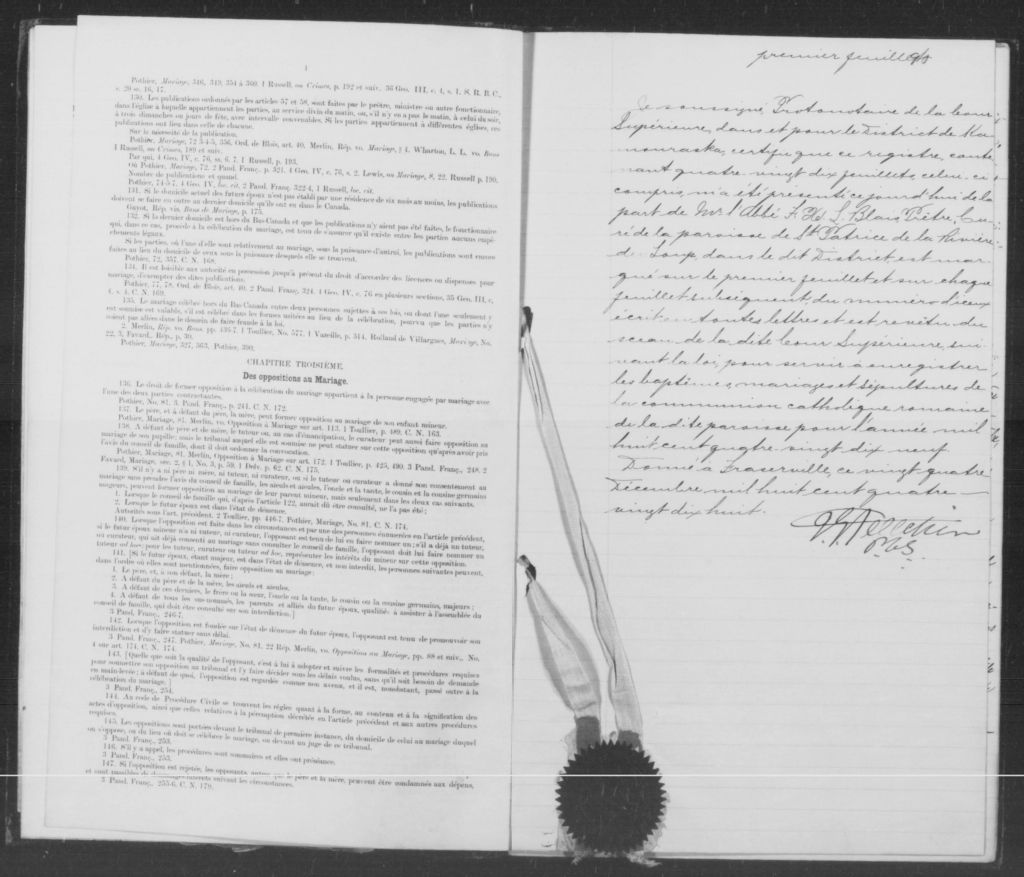 Pothier, Mariage, 346, 349, 354 à 360. 1 Russell, on Crimes, p. 192 et suiv., 36 Geo. III, c. 4, s. 1. S. R. B. C.,
c. 20 ss. 16, 17.
130. Les publications ordonnés par les articles 57 et 58, sont faites par le prêtre, ministre ou autre fonctionnaire,
dans l'église à laquelle appartiennent les parties, au service divin du matin, ou, s'il n'y en a pas le matin, à celui du soir,
à trois dimanches ou jours de fête, avec intervalle convenables. Si les parties appartiennent à différentes églises, ces
publications ont lieu dans celle de chacune.
Sur la nécessité de la publication.
Pothier, Mariage, 72 3-4-5, 356. Ord. de Blois, art. 40. Merlin, Rép. vo. Mariage, § 4. Wharton, L. L. vo. Bans
1 Russell, on Crimes, 189 et suiv.
Par qui, 4 Geo. IV, c. 76, ss. 6, 7. 1 Russell, p. 193.
Où Pothier, Mariage, 72. 2 Pand. Franç. p. 321. 4 Geo. IV, c. 76, s. 2. Lewis, on Mariage, 8, 22. Russell p. 190.
Nombre de publications et quand.
Pothier, 74-5-7. 4 Geo. IV, loc. cit. 2 Pand. Franç. 322-4, 1 Russell, loc. cit.
131. Si le domicile actuel des futurs époux n'est pas établi par une résidence de six mois au moins, les publications
doivent se faire en outre au dernier domicile qu'ils ont eu dans le Canada.
Guyot, Rép. vis. Bans de Mariage, p. 175.
132. Si la dernier domicile est hors du Bas-Canada et que les publications n'y aient pas été faites, le fonctionnaire
qui, dans ce cas, procède à la célébration du mariage, est tenu de s'assurer qu'il existe entre les parties aucuns empê-
chements légaux.
Si les parties, où l'une d'elle sont relativement au mariage, sous la puissance d'autrui, les publications sont encore
faites au lieu du domicile de ceux sous la puissance desquels elle se trouvent.
Pothier, 72, 357. C. N. 168.
134. Il est loisible aux autorité en possession jusqu'à présent du droit d'accorder des licences ou dispenses pour
mariage, d'exempter des dites publications.
Pothier, 77, 78. Ord. de Blois, art. 40. 2 Pand. Franç. 324. 4 Geo. IV, c. 76 en plusieurs sections, 35 Geo. III, c,
4, s. 4. C. N. 169.
135. Le mariage célébré hors du Bas-Canada entre deux personnes sujettes à ses lois, ou dont l'une seulement y
est soumise est valable, s'il est célébré dans les formes usitées au lieu de la célébration, pourvu que les parties n'y
soient pas allées dans le dessein de faire fraude à la loi.
2. Merlin, Rép. vo. Bans, pp. 436-7. 1 Toullier, No. 577. 1 Vazeille, p. 314. Rolland de Villargues, Mariage, No.
22, 3, Favard., Rép., p. 39.
Pothier, Mariage, 327, 363. Pothier, 390.
CHAPITRE TROISIÈME.
Des oppositions au Mariage.
136. Le droit de former opposition à la célébration du mariage appartient à la personne engagée par mariage avec
l'une des deux parties contractantes.
Pothier, No. 81. 3. Pand. Franç., p. 241. C. N. 172.
137. Le père, et à défaut du père, la mère, peut former opposition au mariage de son enfant mineur.
Pothier, Mariage, 81. Merlin, vo. Opposition à Mariage sur art. 113. 1 Toullier, p. 489. C. N. 163.
138. A défaut de père et de mère, le tuteur ou, au cas d'émancipation, le curateur peut aussi faire opposition au
mariage de son pupille; mais le tribunal auquel elle est soumise ne peut statuer sur cette opposition qu'après avoir pris
l'avis du conseil de famille, dont il doit ordonner la convocation.
Pothier, Mariage, 81. Merlin, Opposition à Mariage sur art. 172. 1 Toullier, p. 425, 490. 3 Pand. Franç., 248. 2
Favard, Mariage, sec. 2, § 1, No. 3, p. 59. 1 Delv. p. 62. C. N. 175.
139. S'il n'y a ni père ni mère, ni tuteur, ni curateur, ou si le tuteur ou curateur a donné son consentement au
mariage sans prendre l'avis du conseil de famille, les aïeuls et aïeules, l'oncle et la tante, le cousin et la cousine germains
majeurs, peuvent former opposition au mariage de leur parent mineur, mais seulement dans les deux cas suivants.
1. Lorsque le conseil de famille qui, d'après l'article 122, aurait dû être consulté, ne l'a pas été;
2. Lorsque le futur époux est dans l'état de démence.
Autorités sous l'art. précédent. 2 Toullier, pp. 446-7. Pothier, Mariage, No. 81. C. N. 174.
140. Lorsque l'opposition est faite dans les circonstances et par une des personnes énumérées en l'article précédent,
si le futur époux mineur n'a ni tuteur, ni curateur, l'opposant est tenu de lui en faire nommer un; s'il a déjà un tuteur,
ou curateur, qui ait déjà consenti au mariage sans consulter le conseil de famille, l'opposant doit lui faire nommer un
tuteur ad hoc; pour les tuteur, curateur ou tuteur ad hoc, représenter les intérêts du mineur sur cette opposition.
141. [Si le futur époux, étant majeur, est dans l'état de démence, et non interdit, les personnes suivantes peuvent,
dans l'ordre où elles sont mentionnées, faire opposition au mariage:
1. Le père, et, à son défaut, la mère;
2. A défaut du père et de la mère, les aïeuls et aïeules.
3. A défaut de ces derniers, le frère ou la sœur, l'oncle ou la tante, le cousin ou la cousine germains, majeurs;
4. A défaut de tous les sus-nommés, les parents et alliés du futur époux, qualifiés à assister à l'assemblée du
conseil de famille, qui doit être consulté sur son interdiction.]
3 Pand. Franç., 246-7.
142. Lorsque l'opposition est fondée sur l'état de démence du futur époux, l'opposant est tenu de promouvoir son
interdiction et d'y faire statuer sans délai.
3 Pand. Franç., 247. Pothier, Mariage, No. 81. 22 Rép. Merlin, vo. Opposition au Mariage, pp. 88 et suiv., No.
4 sur art. 174. C. N. 174.
143. [Quelle que soit la qualité de l'opposant, c'est à lui à adopter et suivre les formalités et procédures requises
pour soumettre son opposition au tribunal et l'y faire décider sous les délais voulus, sans qu'il soit besoin de demande
en main-levée; à défaut de quoi, l'opposition est regardée comme non avenue, et il est, nonobstant, passé outre à la
célébration du mariage.]
3 Pand. Franç., 254.
144. Au code de Procédure Civile se trouvent les règles quant à la forme, au contenu et à la signification des
actes d'opposition, ainsi que celles relatives à la péremption décrétée en l'article précédent et aux autres procédures
requises.
145. Les oppositions sont portées devant le tribunal de première instance, du domicile de celui au mariage duquel
on s'oppose, ou du lieu où doit se célébrer le mariage, ou devant un juge de ce tribunal.
3 Pand. Franç., 253.
146. S'il y a appel, les procédures sont sommaires et elles ont préséance.
3 Pand. Franç., 253.
147. Si l'opposition est rejetée, les opposants, autres que le père et la mère, peuvent être condamnés aux dépens,
et sont passibles de dommages-intérêts suivant les circonstances.
3 Pand. Franç., 255-6. C. N. 179.
premier feuillet
Je soussigné, Protonotaire de la Cour
Supérieure, dans et pour le District de Ka-
mouraska, certifie que ce registre, conte-
nant quatre-vingt dix feuillets, celui-ci
compris, m'a été présenté ce jourd'hui de la
part de Mr l'abbé F. Xs. L. Blais Ptre, Cu-
ré de la paroisse de St Patrice de la Rivière
du Loup, dans le dit District, est mar-
qué sur le premier feuillet et sur chaque
feuillet subséquent, du numéro d'iceux
écrit en toutes lettres et est revêtu du
sceau de la dite Cour Supérieure, sui-
vant la loi, pour servir à enregistrer
les baptêmes, mariages et sépultures de
la communion catholique romaine
de la dite paroisse pour l'année mil
huit cent quatre-vingt dix neuf.
Donné à Fraserville, ce vingt quatre
Décembre, mil huit cent quatre-
vingt dix huit.
P.C.S.